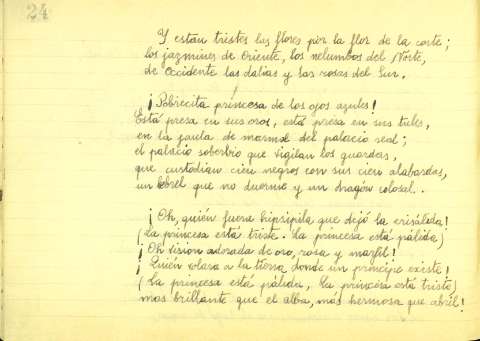 24
Y están tristes las flores por la flor de la corte;
los jazmines de Oriente, los nelumbos del Norte,
de Occidente las dalias y las rosas del Sur.
¡Pobrecita princesa de los ojos azules!
Está presa en sus oros, está presa en sus tules,
en la jaula de marmol del palacio real;
el palacio soberbio que vigilan los guardas,
que custodian cien negros con sus cien alabardas,
un lebrel que no duerme y un dragón colosal.
¡Oh, quién fuera hipsipila que dejó la crisálida!
(La princesa está triste. La princesa está pálida)
¡Oh vision adorada de oro, rosa y marfil!
¡Quién volara a la tierra donde un principe existe!
(La princesa está pálida, la princesa está triste)
mas brillante que el alba, más hermosa que abril!